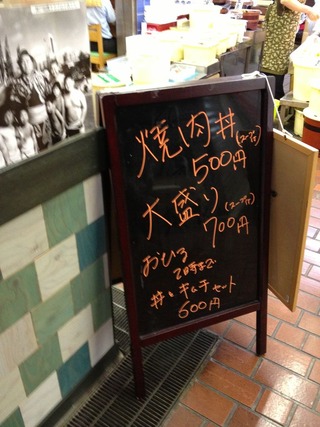 焼肉丼(スープ付)
500円
大盛り(スープ付)
700円
おひる
2時まで
丼&キムチセット
600円